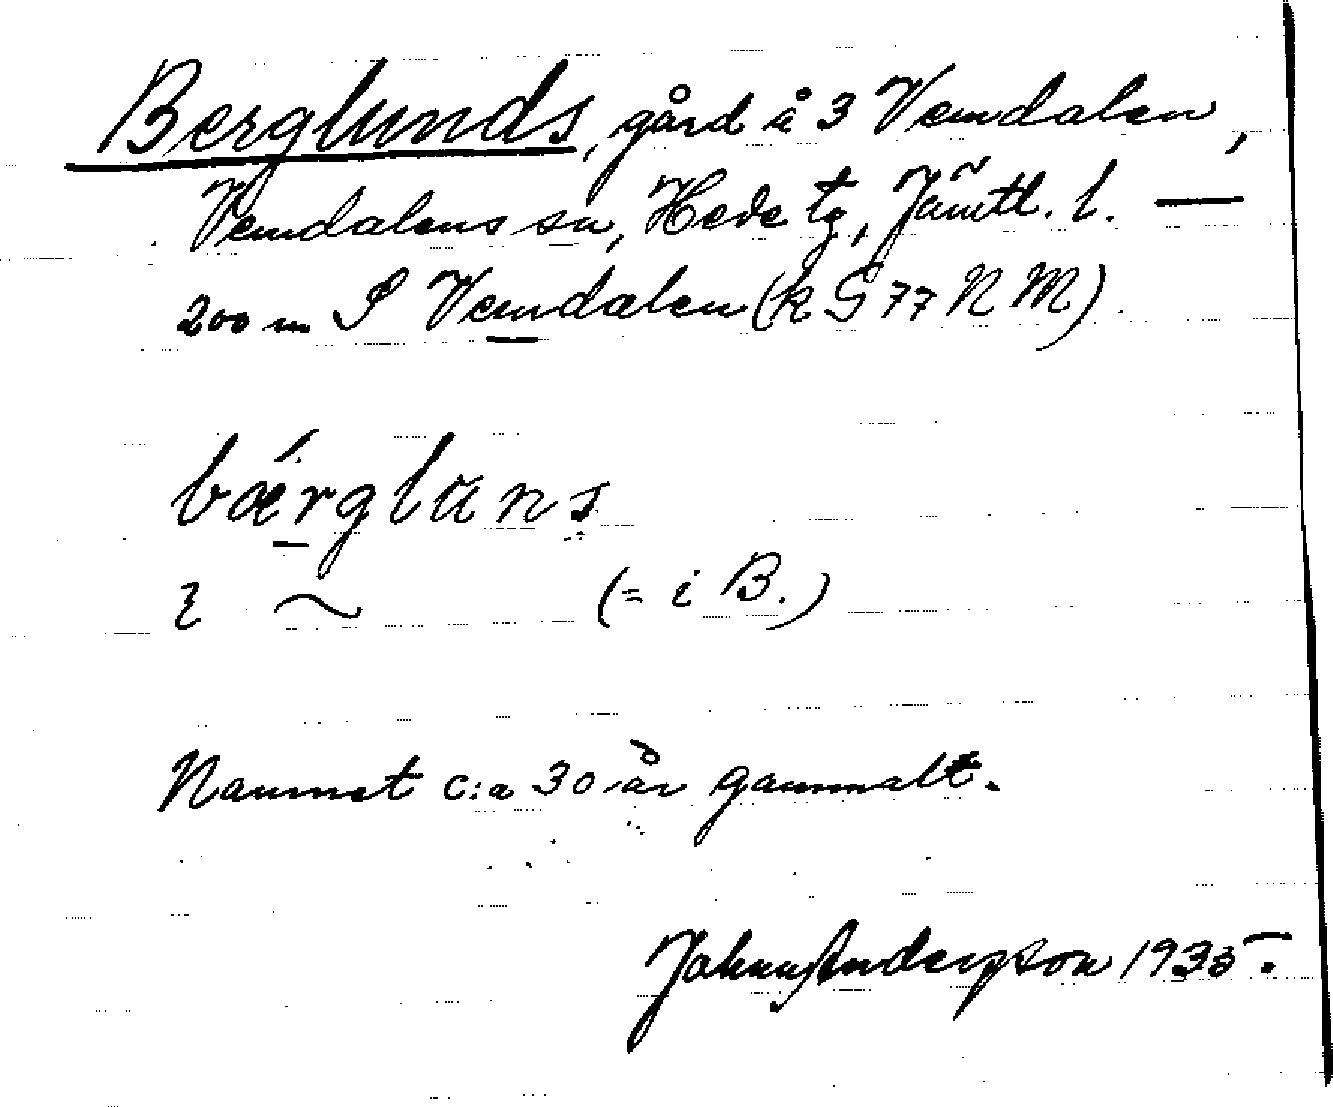 Berglunds, gård å 3 Vemdalen,
Vemdalens sn, Hede tg, Jämtl. l. —
200 m S Vemdalen (k S 77 N M).
bǽrgluns
ɩ ~ (= i B.)
Namnet c:a 30 år gammalt.
Johnny Anderson 1935.